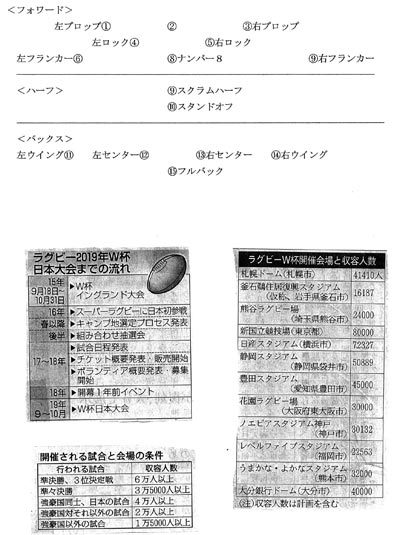 <フォワード>
左プロップ① ② ③右プロップ
左ロック④ ⑤右ロック
左フランカー⑥ ⑧ナンバー8 ⑨右フランカー
<ハーフ> ⑨スクラムハーフ
⑩スタンドオフ
<バックス>
左ウイング⑪ 左センター⑫ ⑬右センター ⑭右ウイング
⑮フルバック
ラグビー2019年W杯
日本大会までの流れ
15年
9月18日~
10月31日
▶W杯
イングランド大会
16年 ▶スーパーラグビーに日本初参戦
春以降 ▶キャンプ地選定プロセス発表
後半 ▶組み合わせ抽選会
▶試合日程発表
17~18年 ▶チケット概要発表・販売開始
▶ボランティア概要発表・募集
開始
18年 ▶開幕1年前イベント
19年
9~10月
▶W杯日本大会
開催される試合と会場の条件
行われる試合 収容人数
準決勝、3位決定戦 6万人以上
準々決勝 3万5000人以上
強豪国同士、日本の試合 4万人以上
強豪国対それ以外の試合 2万人以上
強豪国以外の試合 1万5000人以上
ラグビーW杯開催会場と収容人数
札幌ドーム(札幌市) 41410人
釜石鵜住居復興スタジアム
(仮称、岩手県釜石市) 16187
熊谷ラグビー場
(埼玉県熊谷市) 24000
新国立競技場(東京都) 80000
日産スタジアム(横浜市) 72327
静岡スタジアム
(静岡県袋井市) 50889
豊田スタジアム
(愛知県豊田市) 45000
花園ラグビー場
(大阪府東大阪市) 30000
ノエビアスタジアム神戸
(神戸市) 30132
レベルファイブスタジアム
(福岡市) 22563
うまかな・よかなスタジアム
(熊本市) 32000
大分銀行ドーム(大分市) 40000
(注)収容人数は計画を含む